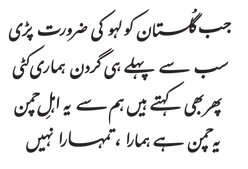 جب گُلستان کو لہو کی ضرورت پڑی
سب سے پہلے ہی گردن ہماری کٹی
پھر بھی کہتے ہیں ہم سے یہ اہلِ چمن
یہ چمن ہے ہمارا ، تمہارا نہیں